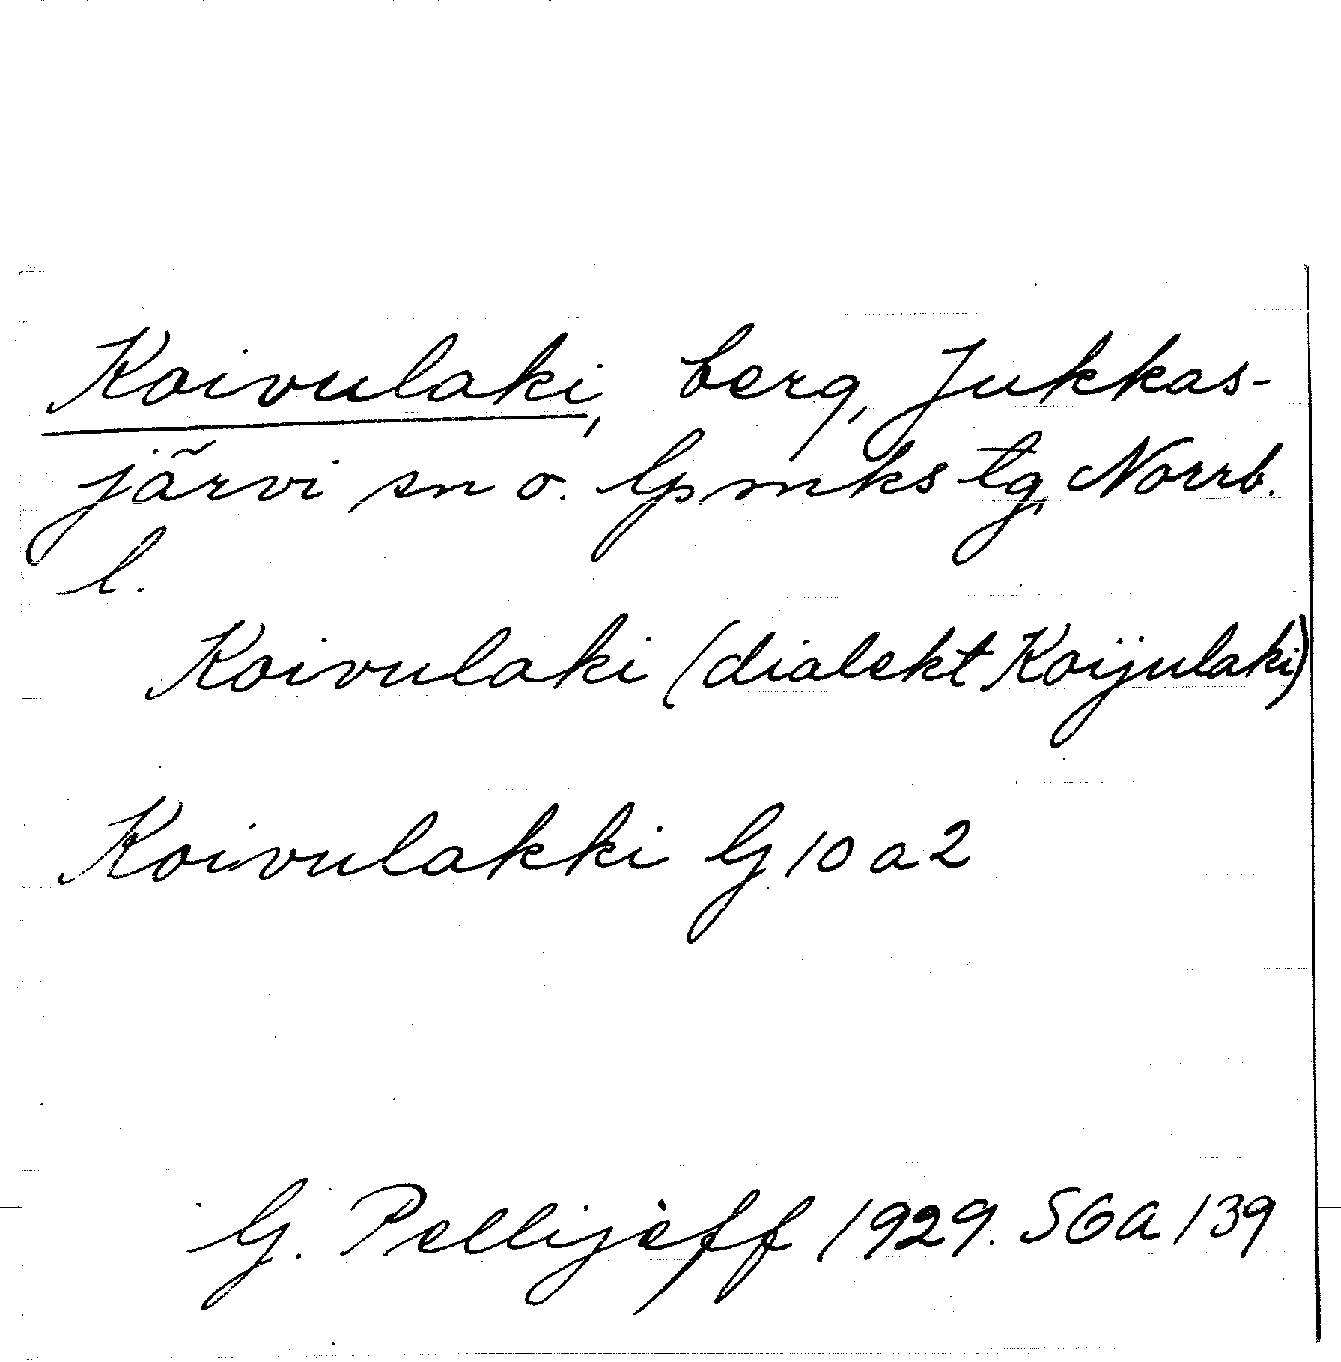 Koivulaki, berg, Jukkas-
järvi sn o. Gpmks tg, Norrb.
l.
Koivulaki (dialekt Koijulaki)
Koivulakki G 10 a 2
G. Pellijeff 1929. SGa 139